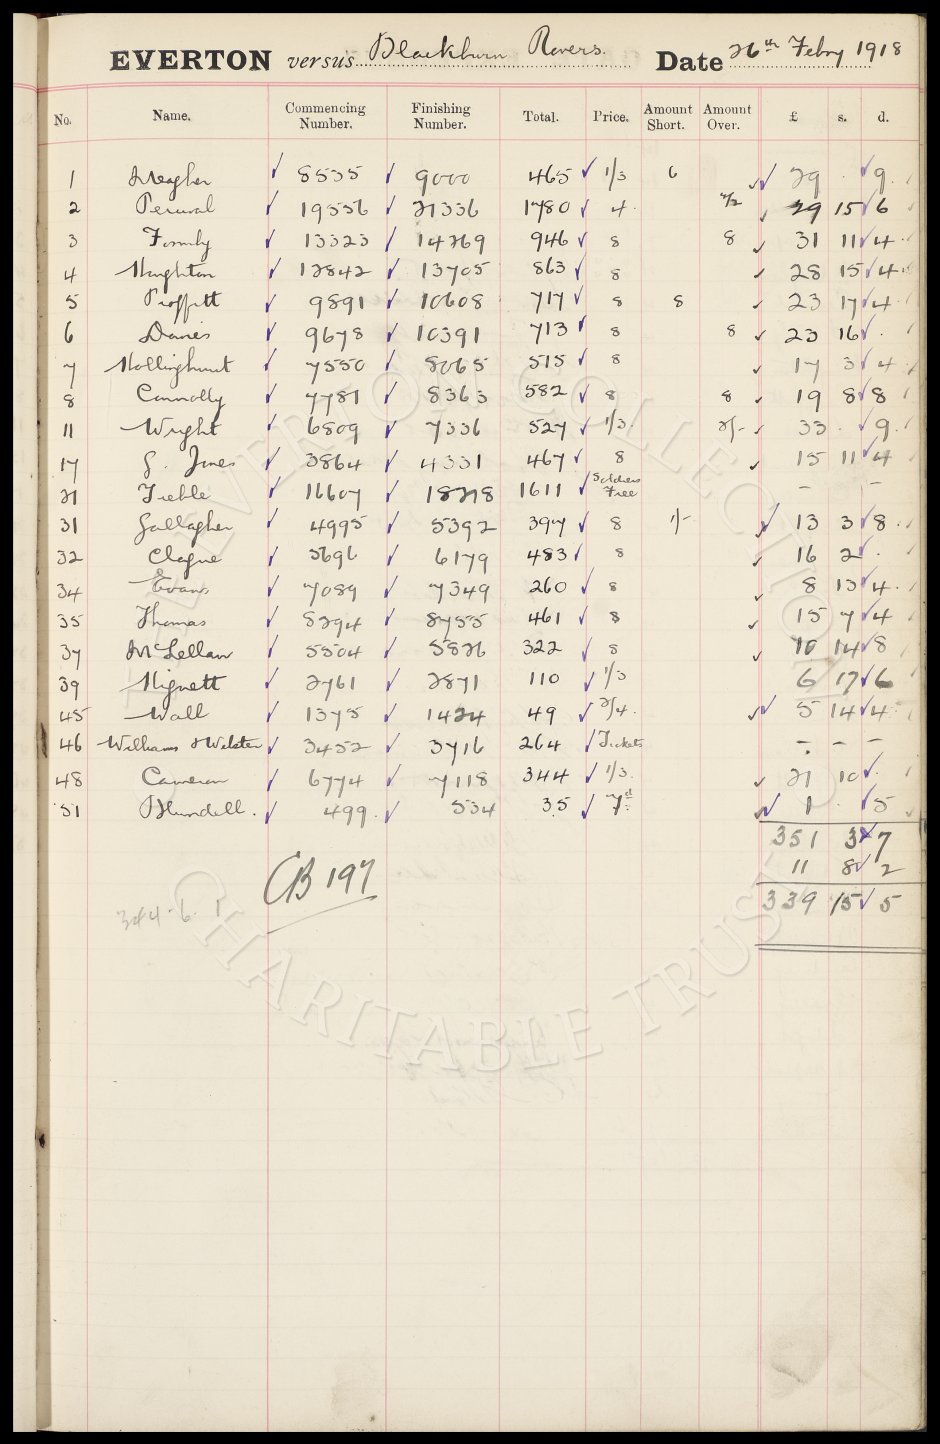 EVERTON versus Blackburn Rovers. Date 26th Febry 1918
No. Name. Commencing Number. Finishing Number. Total. Price. Amount Short. Amount Over. £ s. d.
1 Meagher 8535 9000 465 1/3 6 29 . 9
2 Percival 19556 21336 1780 4 7/2 29 15 6
3 Formby 13323 14269 946 8 8 31 11 4
4 Houghton 12842 13705 863 8 28 15 4
5 Proffitt 9891 10608 717 8 8 23 17 4
6 Davies 9678 10391 713 8 8 23 16 .
7 Hollinghurst 7550 8065 515 8 17 3 4
8 Connolly 7781 8363 582 8 8 19 8 8
11 Wright 6809 7336 527 1/3 2/- 33 . 9
17 G. Jones 3864 4331 467 8 15 11 4
21 Tieble 16607 18218 1611 Soldiers Free - -
31 Gallagher 4995 5392 397 8 1/- 13 3 8
32 Clague 5696 6179 483 8 16 2 .
34 Evans 7089 7349 260 8 8 13 4
35 Thomas 8294 8755 461 8 15 7 4
37 McLellan 5504 5826 322 8 10 14 8
39 Hignett 2761 2871 110 1/3 6 17 6
45 Wall 1375 1424 49 2/4 5 14 4
46 Williams & Webster 3452 3716 264 Tickets - - -
48 Cameron 6774 7118 344 1/3 21 10 .
51 Blundell. 499 534 35 7d 1 . 5
351 3 7
11 8 2
CB 197
339 15 5
EVERTON COLLECTION
CHARITABLE TRUST